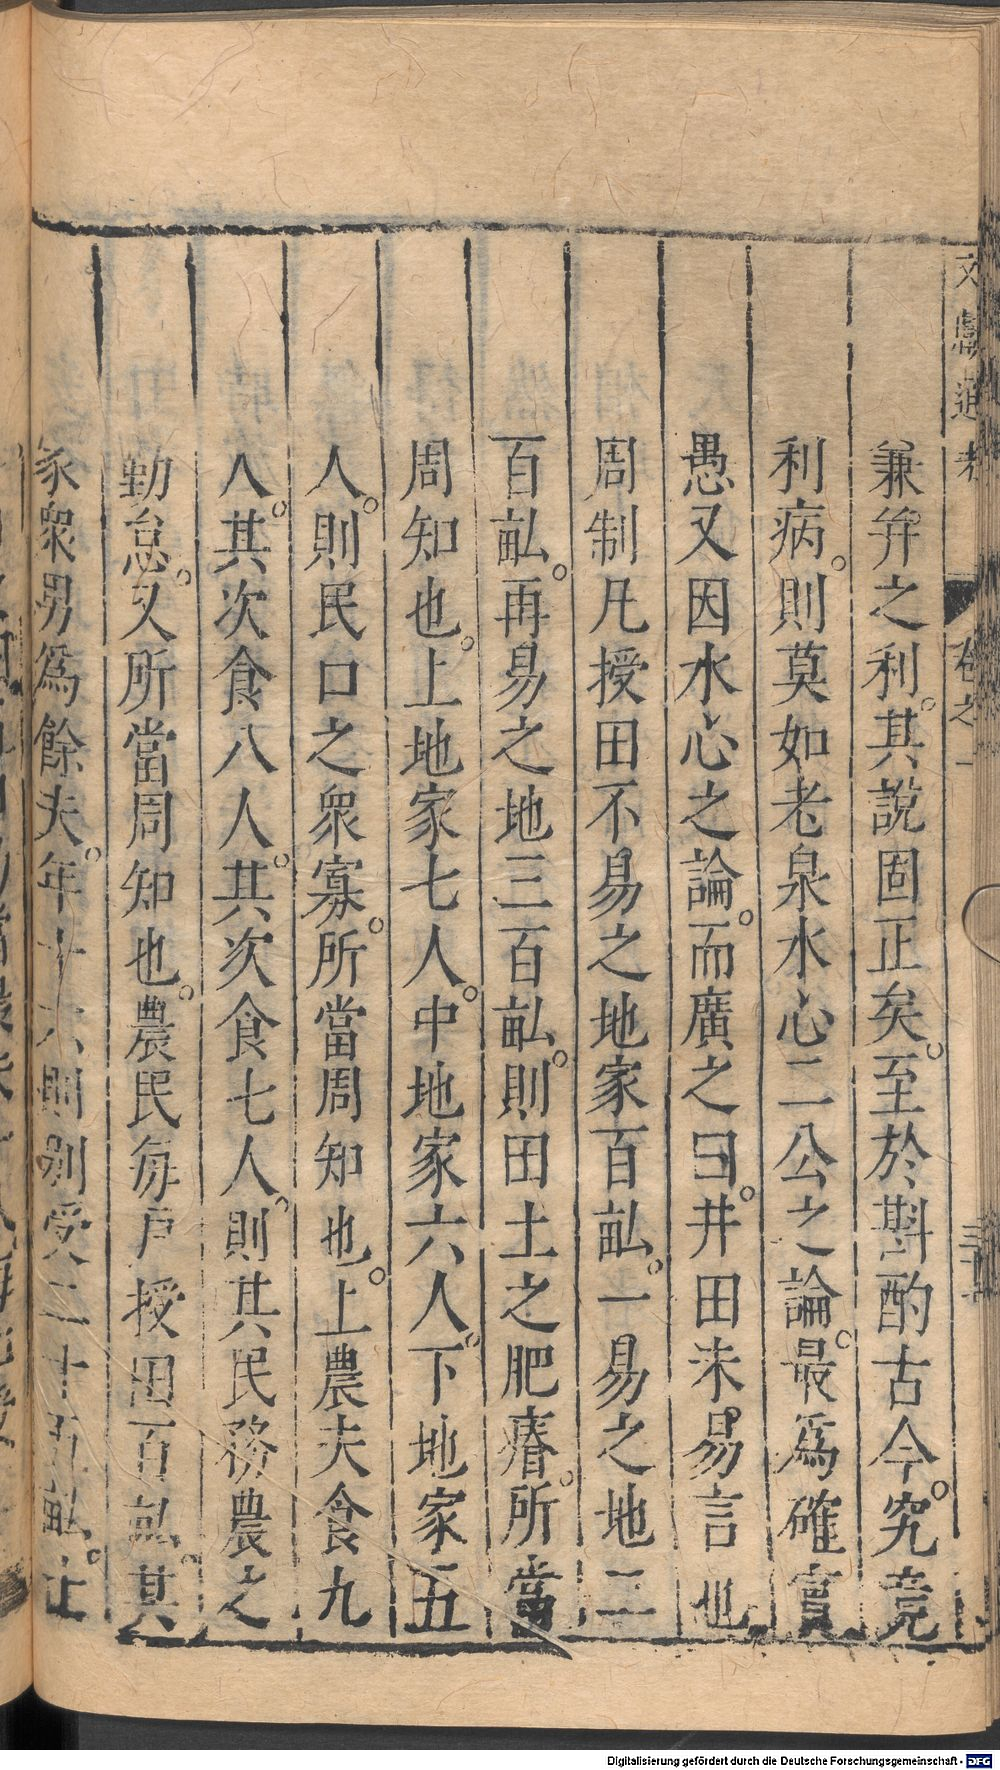 文獻通考 卷之一
兼并之利。其說固正矣。至於斟酌古今。究竟
利病。則莫如老泉水心二公之論。最爲確實
愚又因水心之論。而廣之曰。井田未易言也
周制凡授田不易之地家百畝。一易之地二
百畝。再易之地三百畝。則田土之肥瘠。所當
周知也。上地家七人。中地家六人。下地家五
人。則民口之衆寡。所當周知也。上農夫食九
人。其次食八人。其次食七人。則其民務農之
勤怠。又所當周知也。農民每戶授田百畝。其
家衆男爲餘夫。年十六則別受二十五畝。士
Digitalisierung gefördert durch die Deutsche Forschungsgemeinschaft - DFG